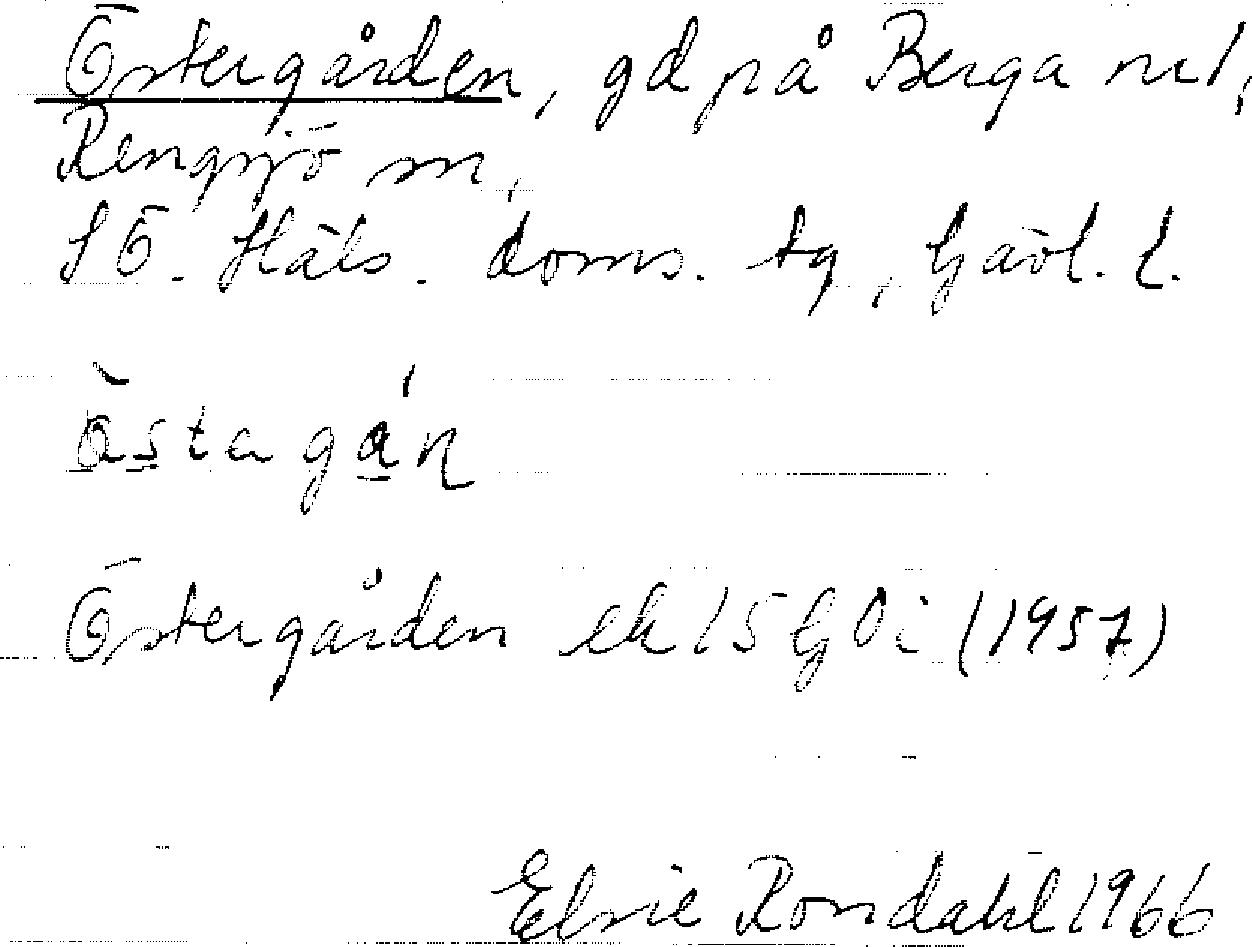 Östergården, gd på Berga nr 1,
Rengsjö sn,
SÖ. Häls. doms. tg, Gävl. l.
Östergården ek 15 G 0 i (1957)
Elsie Rondahl 1966